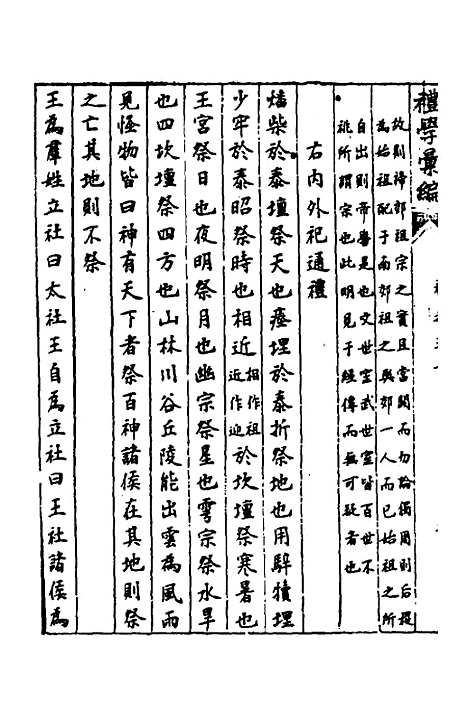 禮學彙編
故則禘郊祖宗之實且當闕而勿論偶周則后稷
為始祖配于南郊祖之與郊一人而已始祖之所
自出則帝嚳是也文世室武世室皆百世不
祧所謂宗也此明見于經傳而無可疑者也
右內外祀通禮
燔柴於泰壇祭天也瘞埋於泰折祭地也用騂犢埋
少牢於泰昭祭時也相近相作祖近作迎於坎壇祭寒暑也
王宮祭日也夜明祭月也幽宗祭星也雩宗祭水旱
也四坎壇祭四方也山林川谷丘陵能出雲為風雨
見怪物皆曰神有天下者祭百神諸侯在其地則祭
之亡其地則不祭
王為羣姓立社曰太社王自為立社曰王社諸侯為